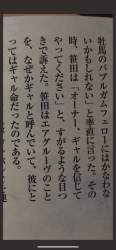 牡馬のバブルガムフェローにはかなわな
いかもしれない」と率直に言った。その
時、笹田は「オーナー、ギャルを信じて
やってください」と、すがるような目つ
きで訴えた。笹田はエアグルーヴのこと
を、なぜかギャルと呼んでいて、彼にと
ってはギャル命だったのである。